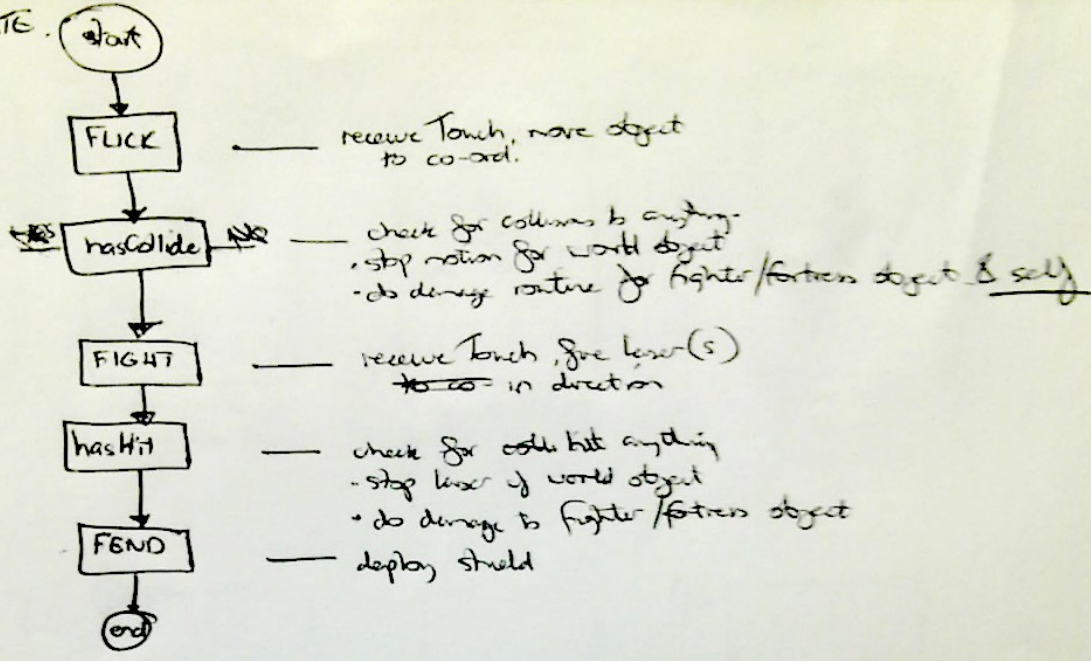 TE.
start
FLICK
receive Touch, move object
to co-ord.
hasCollide
NO
check for collisions to anything.
• stop motion for world object
• do damage routine for fighter/fortress object & self
FIGHT
receive Touch, fire laser(s)
to co- in direction
hasHit
check for colli hit anything
• stop laser if world object
• do damage to fighter/fortress object
FEND
deploy shield
end